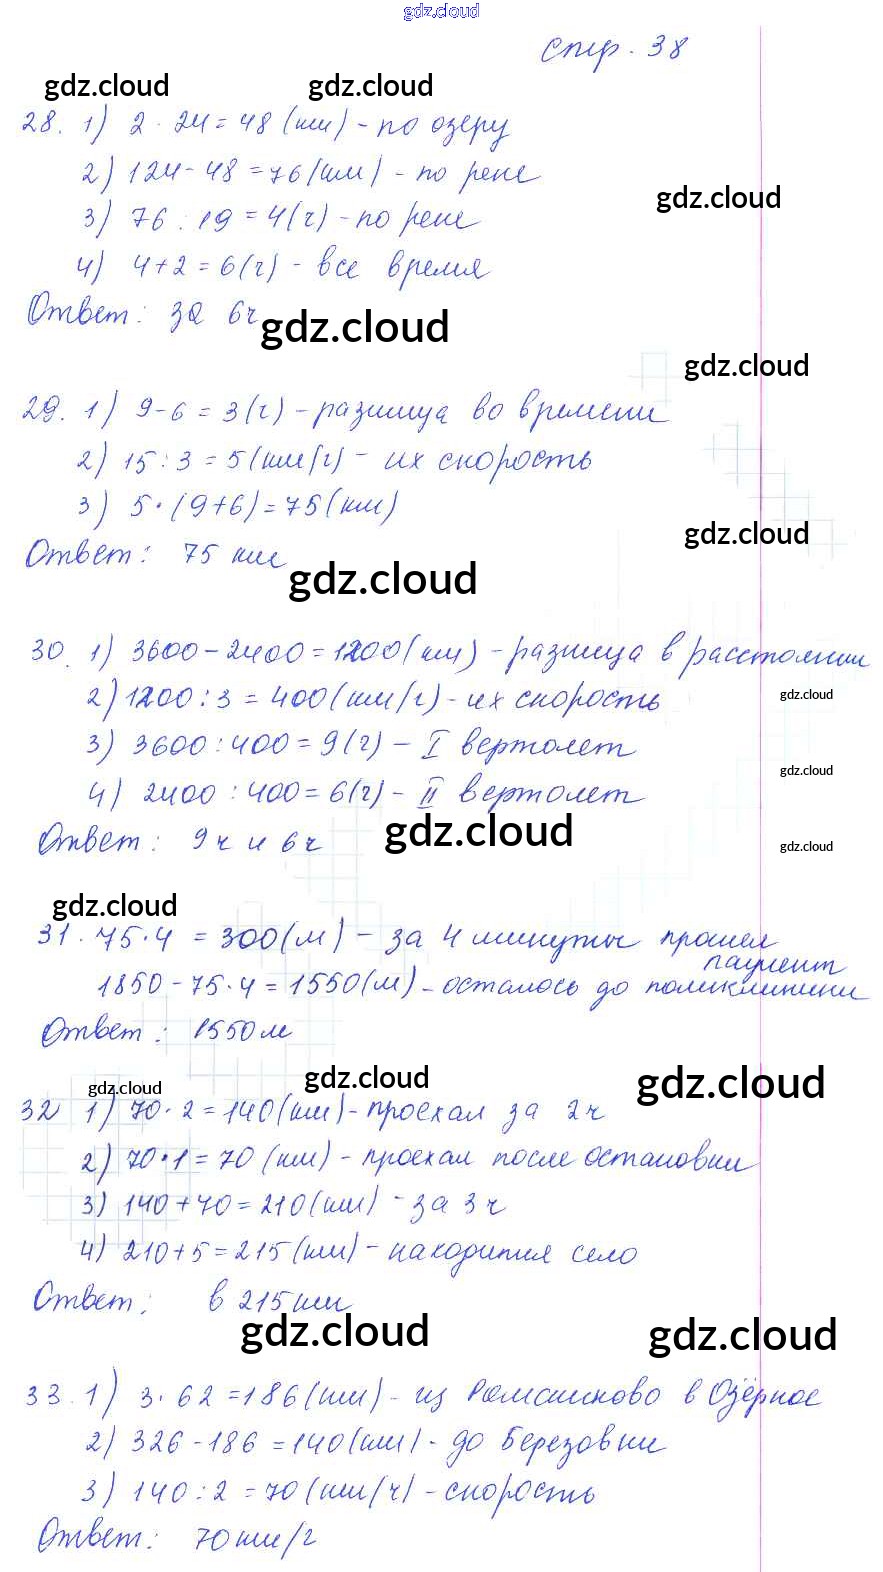 gdz.cloud
стр. 38
gdz.cloud gdz.cloud
28. 1) 2 · 24 = 48 (км) - по озеру
2) 124 - 48 = 76 (км) - по реке
gdz.cloud
3) 76 : 19 = 4 (ч) - по реке
4) 4 + 2 = 6 (ч) - все время
Ответ: за 6 ч
gdz.cloud
gdz.cloud
29. 1) 9 - 6 = 3 (ч) - разница во времени
2) 15 : 3 = 5 (км/ч) - их скорость
3) 5 · (9 + 6) = 75 (км)
gdz.cloud
Ответ: 75 км
gdz.cloud
30. 1) 3600 - 2400 = 1200 (км) - разница в расстоянии
2) 1200 : 3 = 400 (км/ч) - их скорость
gdz.cloud
3) 3600 : 400 = 9 (ч) - I вертолет
gdz.cloud
4) 2400 : 400 = 6 (ч) - II вертолет
Ответ: 9 ч и 6 ч
gdz.cloud
gdz.cloud
gdz.cloud
31. 75 · 4 = 300 (м) - за 4 минуты прошел
пациент
1850 - 75 · 4 = 1550 (м) - осталось до поликлиники
Ответ: 1550 м
gdz.cloud gdz.cloud gdz.cloud
32 1) 70 · 2 = 140 (км) - проехал за 2 ч
2) 70 · 1 = 70 (км) - проехал после остановки
3) 140 + 70 = 210 (км) - за 3 ч
4) 210 + 5 = 215 (км) - находится село
Ответ: в 215 км
gdz.cloud gdz.cloud
33. 1) 3 · 62 = 186 (км) - из Ромашково в Озёрное
2) 326 - 186 = 140 (км) - до Березовки
3) 140 : 2 = 70 (км/ч) - скорость
Ответ: 70 км/ч